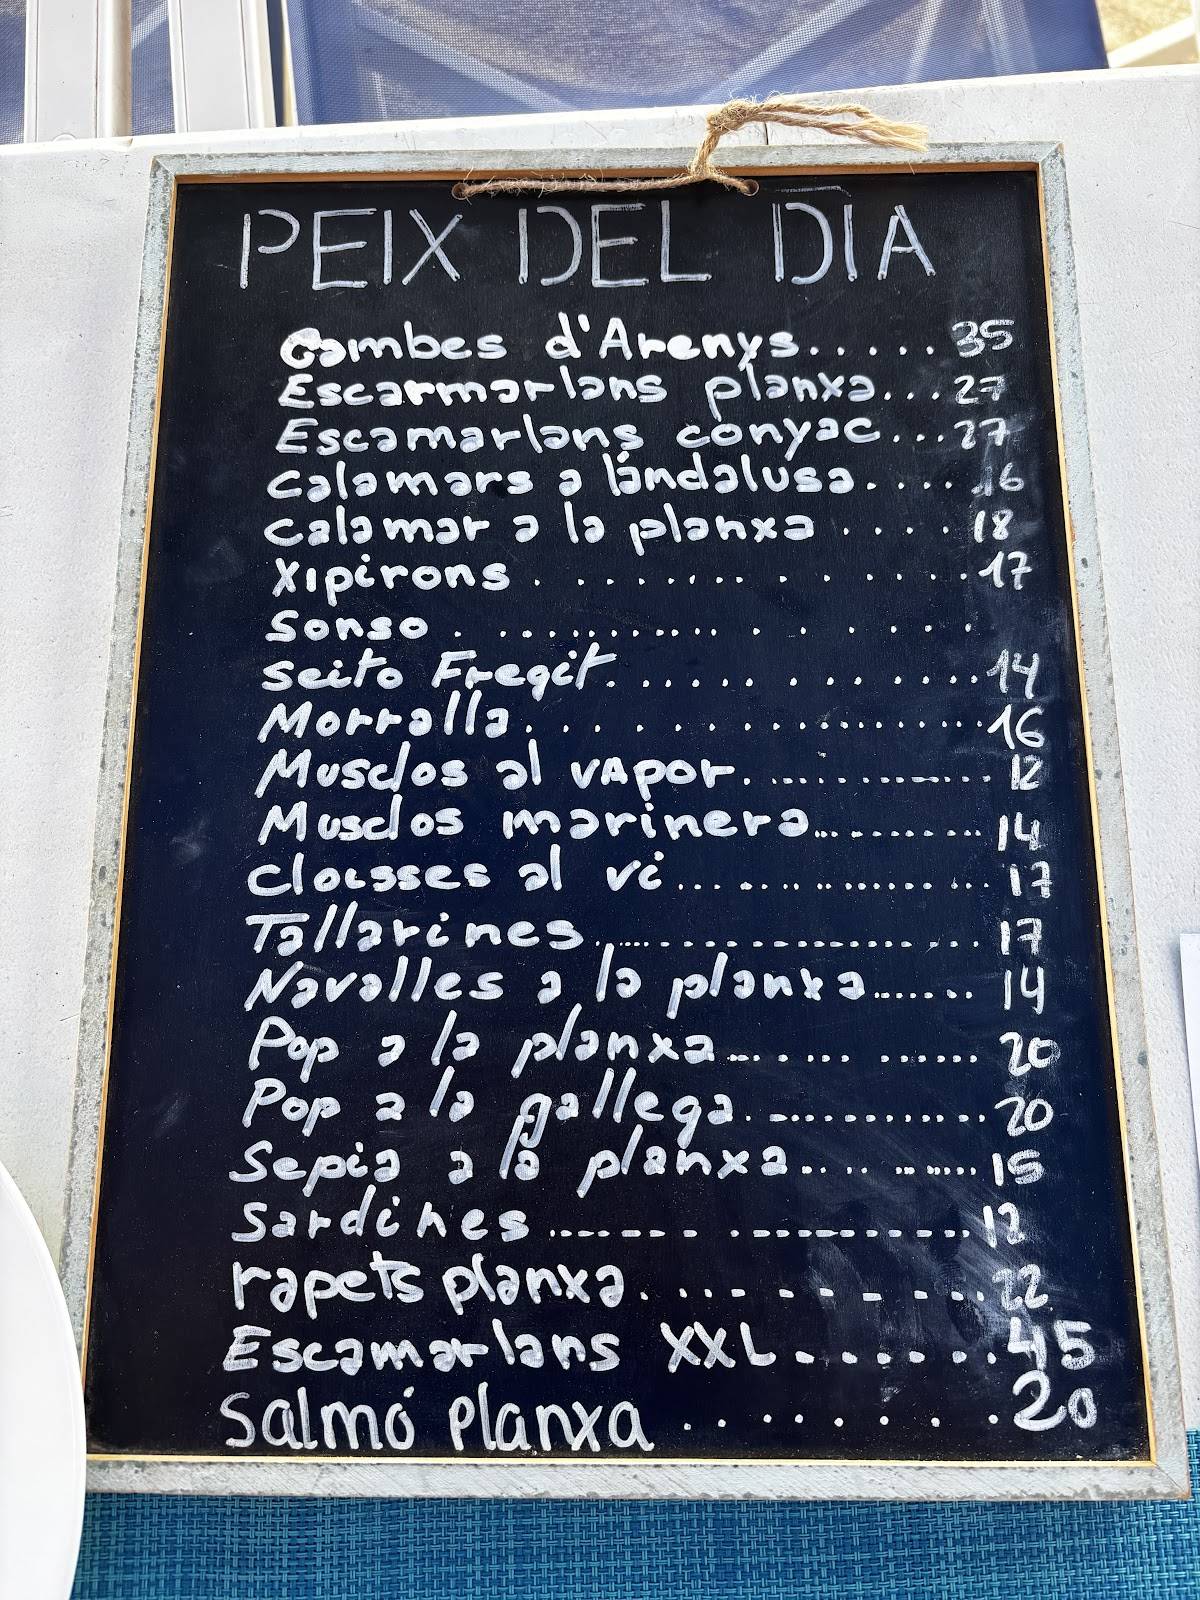 PEIX DEL DÌA
Gambes d'Arenys..... 35
Escarmarlans planxa... 27
Escamarlans cònyac... 27
calamars a lándalusa.... 16
calamar a la planxa .... 18
Xipirons ................ 17
Sonso ...................
Seito Fregit. ............ 14
Morralla.................. 16
Musclos al VAPOR. ............. 12
Musclos marinera........... 14
cloïsses al vi................ 17
Tallarines................... 17
Navalles a la planxa...... 14
Pop a la planxa............. 20
Pop a la gallega............ 20
Sepia a la planxa......... 15
Sardines ................... 12
rapets planxa............ 22
Escamarlans XXL....... 45
Salmó planxa ........ 20